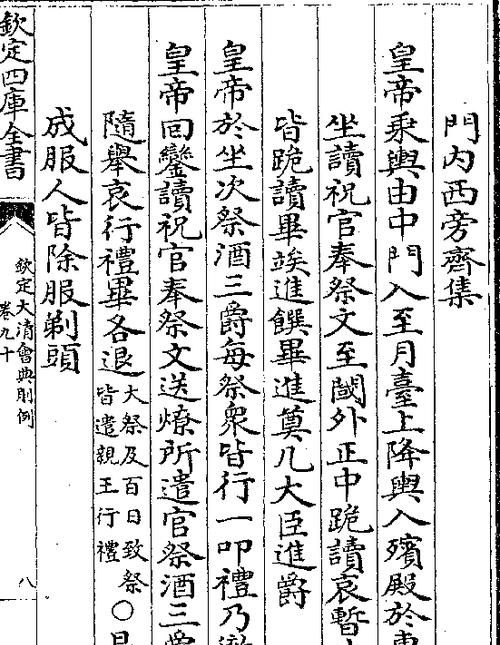 門内西旁齊集
皇帝乘輿由中門入至月臺上降輿入殯殿於東
坐讀祝官奉祭文至閾外正中跪讀哀暫止
皆跪讀畢竢進饌畢進奠几大臣進爵
皇帝於坐次祭酒三爵每祭衆皆行一叩禮乃
皇帝回鑾讀祝官奉祭文送燎所遣官祭酒三爵
隨舉哀行禮畢各退大祭及百日致祭皆遣親王行禮○
成服人皆除服剃頭
欽定四庫全書
欽定大清會典則例
卷九十
八